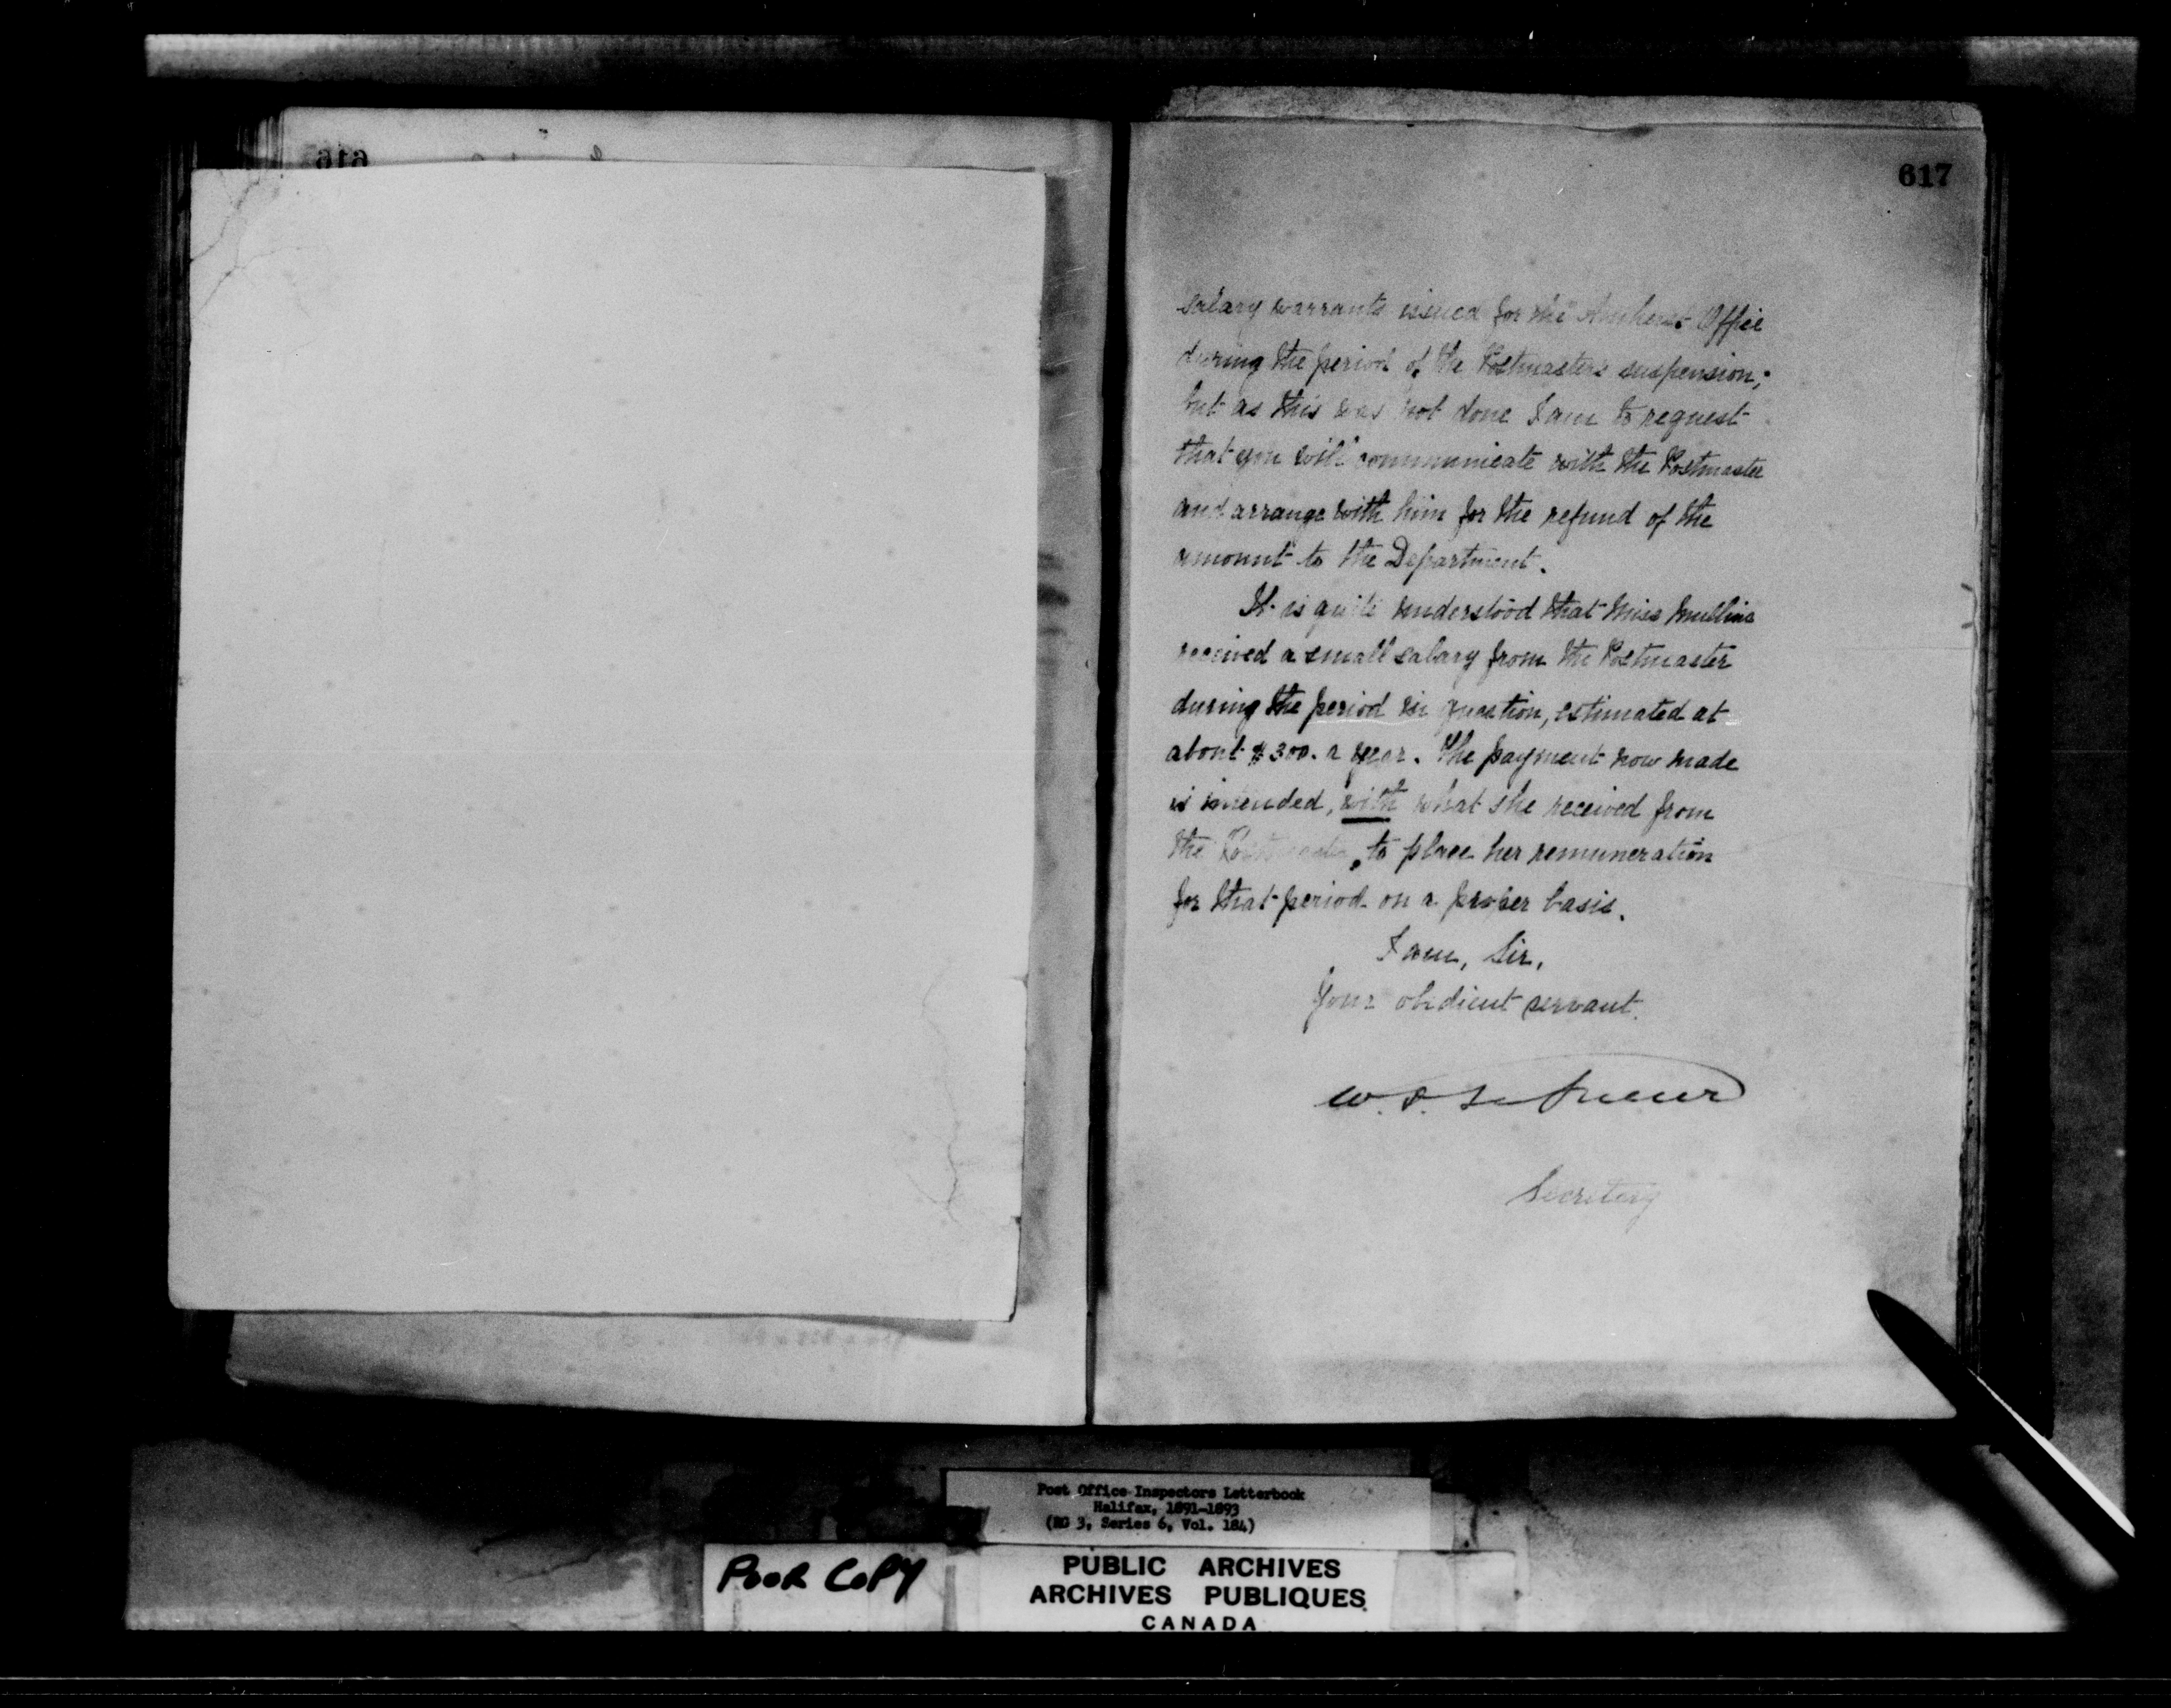 616
617
salary warrants issued for the Amherst Office
during the period of the Postmaster's suspension;
but as this was not done I am to request
that you will communicate with the Postmaster
and arrange with him for the refund of the
amount to the Department.
It is quite understood that Miss Mullins
received a small salary from the Postmaster
during the period in question, estimated at
about $300. a year. The payment now made
is intended, with what she received from
the Postmaster, to place her remuneration
for that period on a proper basis.
I am, Sir,
Your obedient servant.
W. D. LeSueur
Secretary
Post Office Inspectors Letterbook
Halifax, 1891-1893
(RG 3, Series 6, Vol. 184)
POOR COPY
PUBLIC ARCHIVES
ARCHIVES PUBLIQUES
CANADA